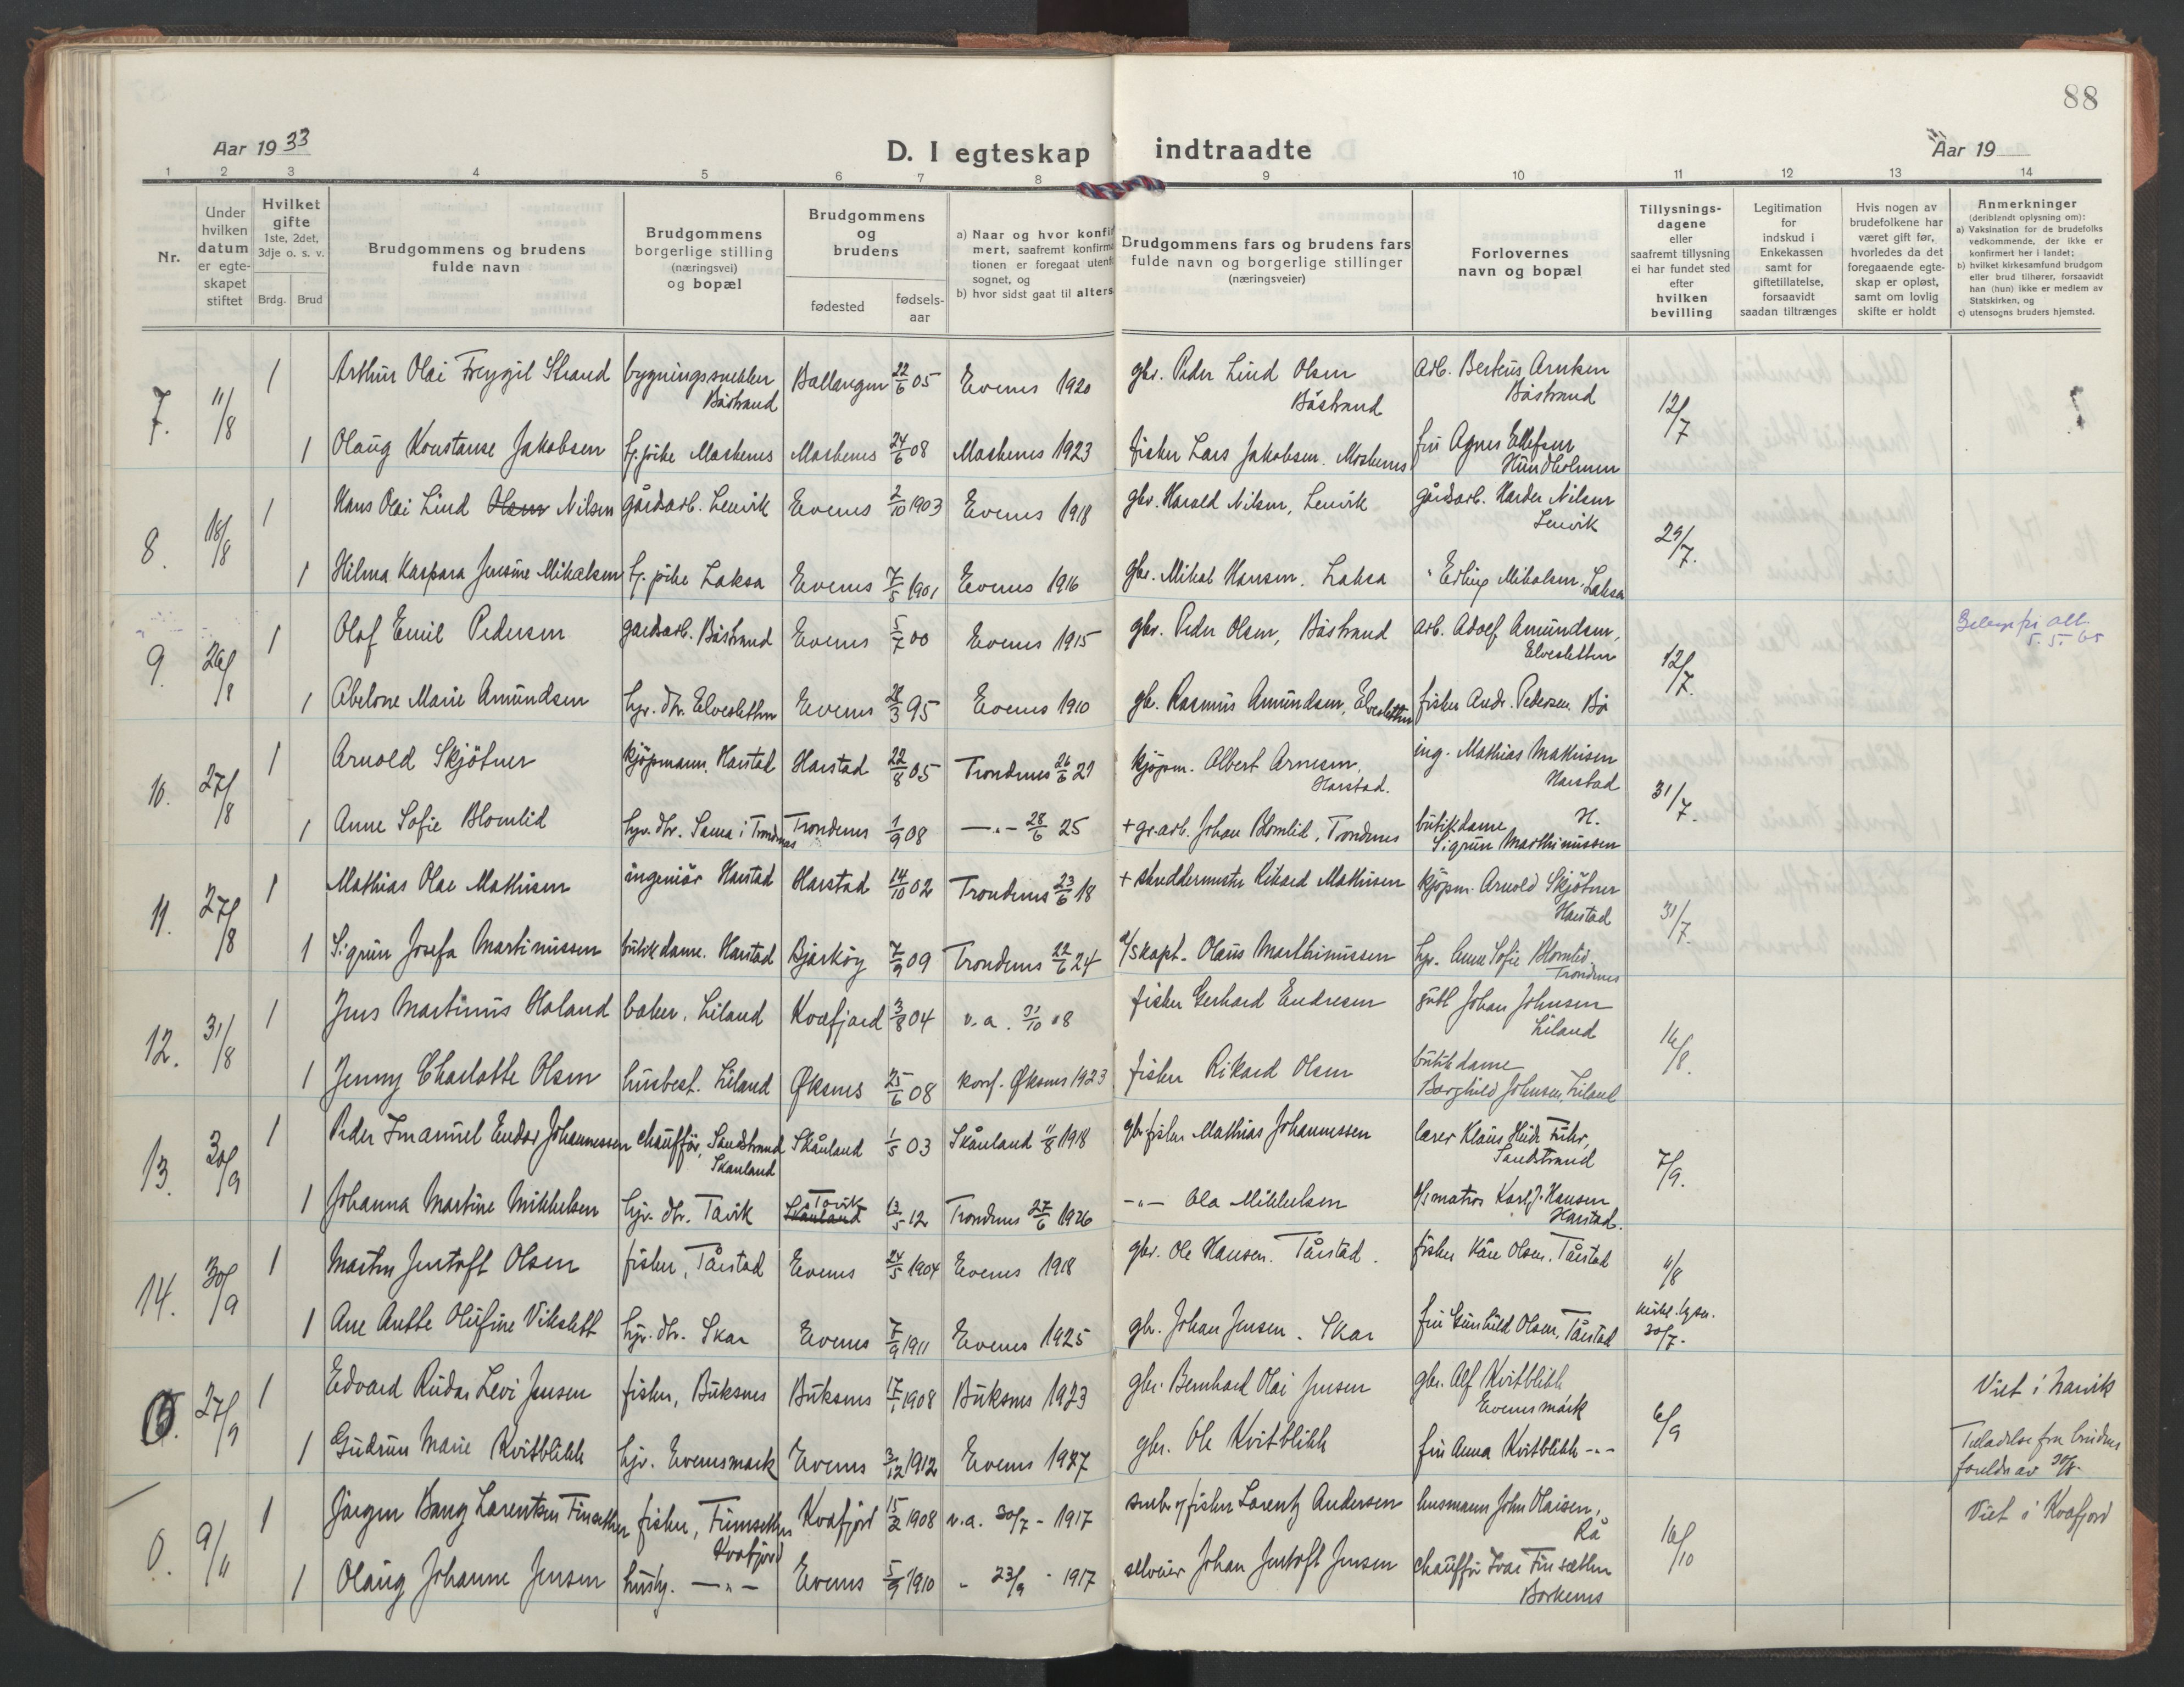 88
Aar 1933
D. I egteskap indtraadte
Aar 19
1 2 3 4 5 6 7 8 9 10 11 12 13 14
Nr.
Under hvilken datum er egteskapet stiftet
Hvilket gifte 1ste, 2det, 3dje o. s. v.
Brdg. Brud
Brudgommens og brudens fulde navn
Brudgommens borgerlige stilling (næringsvei) og bopæl
Brudgommens og brudens
fødested
fødsels-aar
a) Naar og hvor konfir
mert, saafremt konfirma
tionen er foregaat utenfo
sognet, og
b) hvor sidst gaat til alters
Brudgommens fars og brudens fars fulde navn og borgerlige stillinger (næringsveier)
Forlovernes navn og bopæl
Tillysnings-dagene eller saafremt tillysning ei har fundet sted efter hvilken bevilling
Legitimation for indskud i Enkekassen samt for giftetillatelse, forsaavidt saadan tiltrænges
Hvis nogen av brudefolkene har været gift før, hvorledes da det foregaaende egte-skap er opløst, samt om lovlig skifte er holdt
Anmerkninger
(deriblandt oplysning om):
a) Vaksination for de brudefolks vedkommende, der ikke er konfirmert her i landet;
b) hvilket kirkesamfund brudgom eller brud tilhører, forsaavidt han (hun) ikke er medlem av Statskirken, og
c) utensogns bruders hjemsted.
7. 11/8 1 Arthur Olai Freygil Strand bygningssnekker Båstrand Ballangen 22/6 05 Evenes 1920 gbr. Peder Lind Olsen Båstrand arb. Berteus Arntsen Båstrand 12/7
1 Olaug Konstanse Jakobsen hj. pike Maskenes Maskenes 24/6 08 Maskenes 1923 fisker Lars Jakobsen. Maskenes fru Agnes Ellefsen Hundholmen
8. 18/8 1 Hans Olai Lind Olsen Nilsen gårdsarb. Lenvik Evenes 2/10 1903 Evenes 1918 gbr. Harald Nilsen, Lenvik gårdsarb. Harder Nilsen Lenvik 29/7.
1 Hilma Kaspara Jensine Mikalsen hj. pike Laksa Evenes 7/5 1901 Evenes 1916 gbr. Mikal Hansen. Laksa " Erling Mikalsen, Laksa
9. 26/8 1 Olaf Emil Pedersen gardsarb. Båstrand Evenes 5/7 00 Evenes 1915 gbr. Peder Olsen, Båstrand arb. Adolf Amundsen, Elvesletten 12/7. 5.5.65
1 Abelone Marie Amundsen hjv. dtr. Elvesletten Evenes 28/3 95 Evenes 1910 gbr. Rasmus Amundsen, Elvesletten fisker Andr. Pedersen Bø
10. 27/8 1 Arnold Skjötner kjöpmann. Harstad Harstad 22/8 05 Trondenes 26/6 21 kjöpm. Albert Arnesen, Harstad. ing. Mathias Mathisen Harstad 31/7.
1 Anne Sofie Blomlid hjv. dtr. Sama i Trondenes Trondenes 1/9 08 —"— 28/6 25 + gr. arb. Johan Blomlid, Trondenes butikdame H. Sigrun Marthinussen
11. 27/8 1 Mathias Olai Mathisen ingeniör Harstad Harstad 14/10 02 Trondenes 23/6 18 + skreddermester Rikard Mathisen kjöpm. Arnold Skjötner Harstad 31/7.
1 Sigrun Josefa Martinussen butikdame. Harstad Bjarköy 7/9 09 Trondenes 22/6 24 d/skapt. Olaus Marthinussen hjv. Anne Sofie Blomlid Trondenes
12. 31/8 1 Jens Martinus Haland baker, Liland Kvæfjord 3/8 04 v.a. 31/10 08 fisker Gerhard Endresen Johan Johnsen Liland 16/8.
1 Jenny Charlotte Olsen husbest. Liland Øksnes 25/6 08 konf. Øksnes 1923 fisker Rikard Olsen butikdame Borghild Johnsen, Liland
13. 30/9 1 Peder Imanuel Endor Johannessen chauffør, Sandstrand Skånland Skånland 1/5 03 Skånland 11/8 1918 gbr. fisker Mathias Johannessen lærer Klaus Hude Führ, Sandstrand 7/9.
1 Johanna Martine Mikkelsen hjv. dtr. Tovik Skånland Tovik 13/5 12 Trondenes 27/6 1926 —"— Ola Mikkelsen d/s matros Karl J. Hansen Harstad.
14. 30/9 1 Martin Jentoft Olsen fisker, Tårstad Evenes 24/5 1904 Evenes 1918 gbr. Ole Hansen. Tårstad. fisker Kåre Olsen. Tårstad 11/8
1 Ane Antte Olufine Vikslett hjv. dtr. Skar Evenes 7/9 1911 Evenes 1925 gbr. Johan Jensen. Skar fru Gunhild Olsen, Tårstad 30/7.
15. 27/9 1 Edvard Rudar Levi Jensen fisker, Buksnes Buksnes 17/1 1908 Buksnes 1923 gbr. Bernhard Olai Jensen gbr. Alf Kvitblikk Evenesmark 6/9 Viet i Narvik
1 Gudrun Marie Kvitblikk hjv. Evenesmark Evenes 3/12 1912 Evenes 1927 gbr. Ole Kvitblikk fru Anna Kvitblikk —"— Tilladelse fra brudens foreldre av 20/8.
0. 9/11 1 Jørgen Bang Larentsen Finsæther fisker, Finnsæther Kvæfjord Kvæfjord 15/2 1908 v.a. 30/7 - 1917 småbr. og fisker Larentz Andersen husmann John Olaisen, Rå 16/10 Viet i Kvæfjord
1 Olaug Johanne Jensen hushj. —"— Evenes 5/9 1910 " 23/9 - 1917 selveier Johan Jentoft Jensen chauffør Ivar Finsæther Borkenes